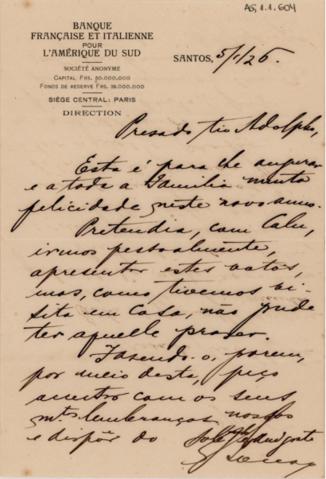 AS.1.1.604
BANQUE
FRANÇAISE ET ITALIENNE
POUR
L'AMÉRIQUE DU SUD
SOCIÉTÉ ANONYME
CAPITAL FRS. 50.000.000
FONDS DE RESERVE FRS.
SIÈGE CENTRAL: PARIS
DIRECTION
SANTOS, 5/1/26.
Presado tio Adolpho,
Esta é para lhe augurar
e a toda a Familia muita
felicidade neste novo anno.
Pretendia, com
irmos pessoalmente,
apresentar estes votos,
mas, como tivemos vi-
sita em casa, não pude
ter aquelle prazer.
Fazendo-o, porem,
por meio desta, peço
com os seus
mtas lembranças nossas
e dispôr do